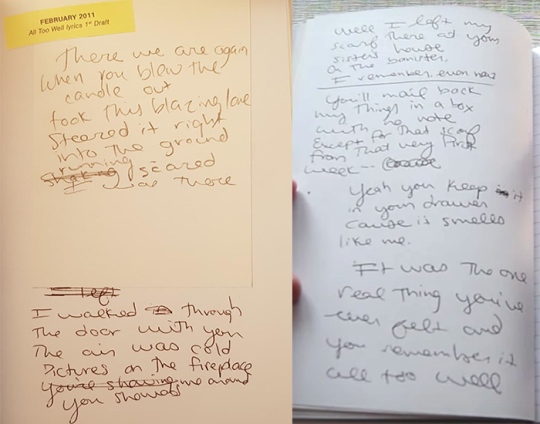 FEBRUARY 2011
All Too Well lyrics 1st Draft
There we are again
when you blew the
candle out
took this blazing love
Steered it right
into the ground
running scared
I was there
I left
I walked through
The door with you
The air was cold
Pictures on the fireplace
You're showing me around
you showed
Well I left my
scarf there at your
sisters house
on the banister.
I remember even now
You'll mail back
my things in a box
with no note
Except for that scarf
from that very first
week --
Yeah you keep it
in your drawer
cause it smells
like me.
It was the one
real thing you've
ever felt and
you remember it
all too well